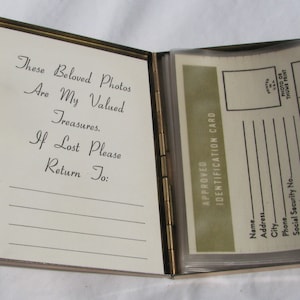 These Beloved Photos
Are My Valued
Treasures.
If Lost Please
Return To:
APPROVED
IDENTIFICATION CARD
PHOTO OR
THUMB PRINT
Name
Address
City
Phone
Social Security No.